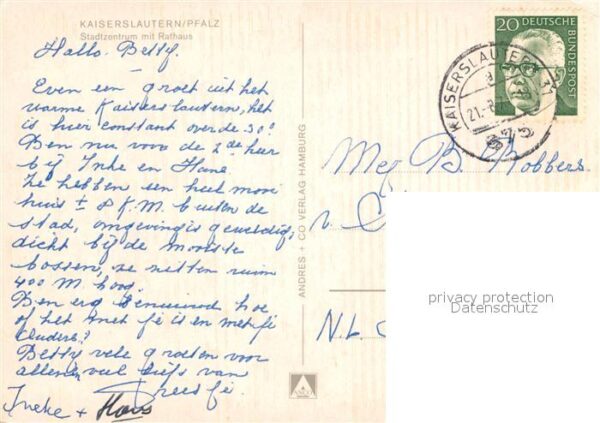 KAISERSLAUTERN/PFALZ
Stadtzentrum mit Rathaus
Hallo. Betty.
Even een groet uit het
warme Kaiserslautern, het
is hier constant over de 30°
Ben nu voor de 2de keer
bij Ineke en Hans
Ze hebben een heel mooi
huis ± 8 K.M. buiten de
stad, omgeving is geweldig,
dicht bij de mooiste
bossen, ze zitten ruim
400 M hoog.
Ben erg benieuwd hoe
of het met je is en met je
Ouders?
Betty vele groeten voor
allen en veel liefs van
Ineke + Hans
Trees
ANDRES + CO VERLAG HAMBURG
20 DEUTSCHE BUNDESPOST
KAISERSLAUTERN 31
21.-8
Mej B. Robbers.
N.L.
privacy protection
Datenschutz